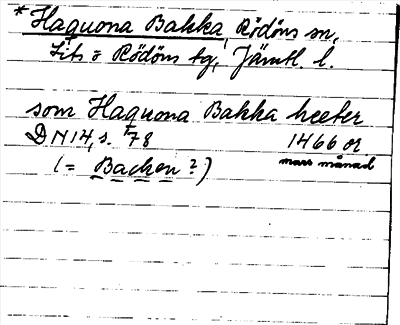 * Haquona Bakka, Rödöns sn,
Lits o Rödöns tg, Jämtl. l.
som Haquona Bakka heeter
DN14, s. 78 1466 or
mars månad
(= Backen?)